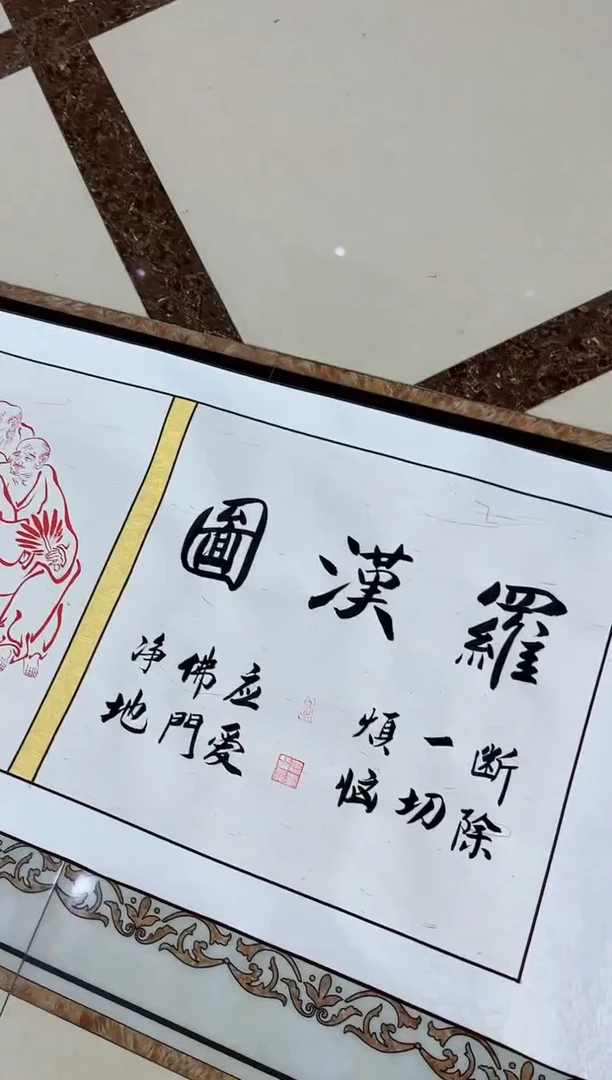 羅漢圖
断除
一切
煩惱
应愛
佛門
净地